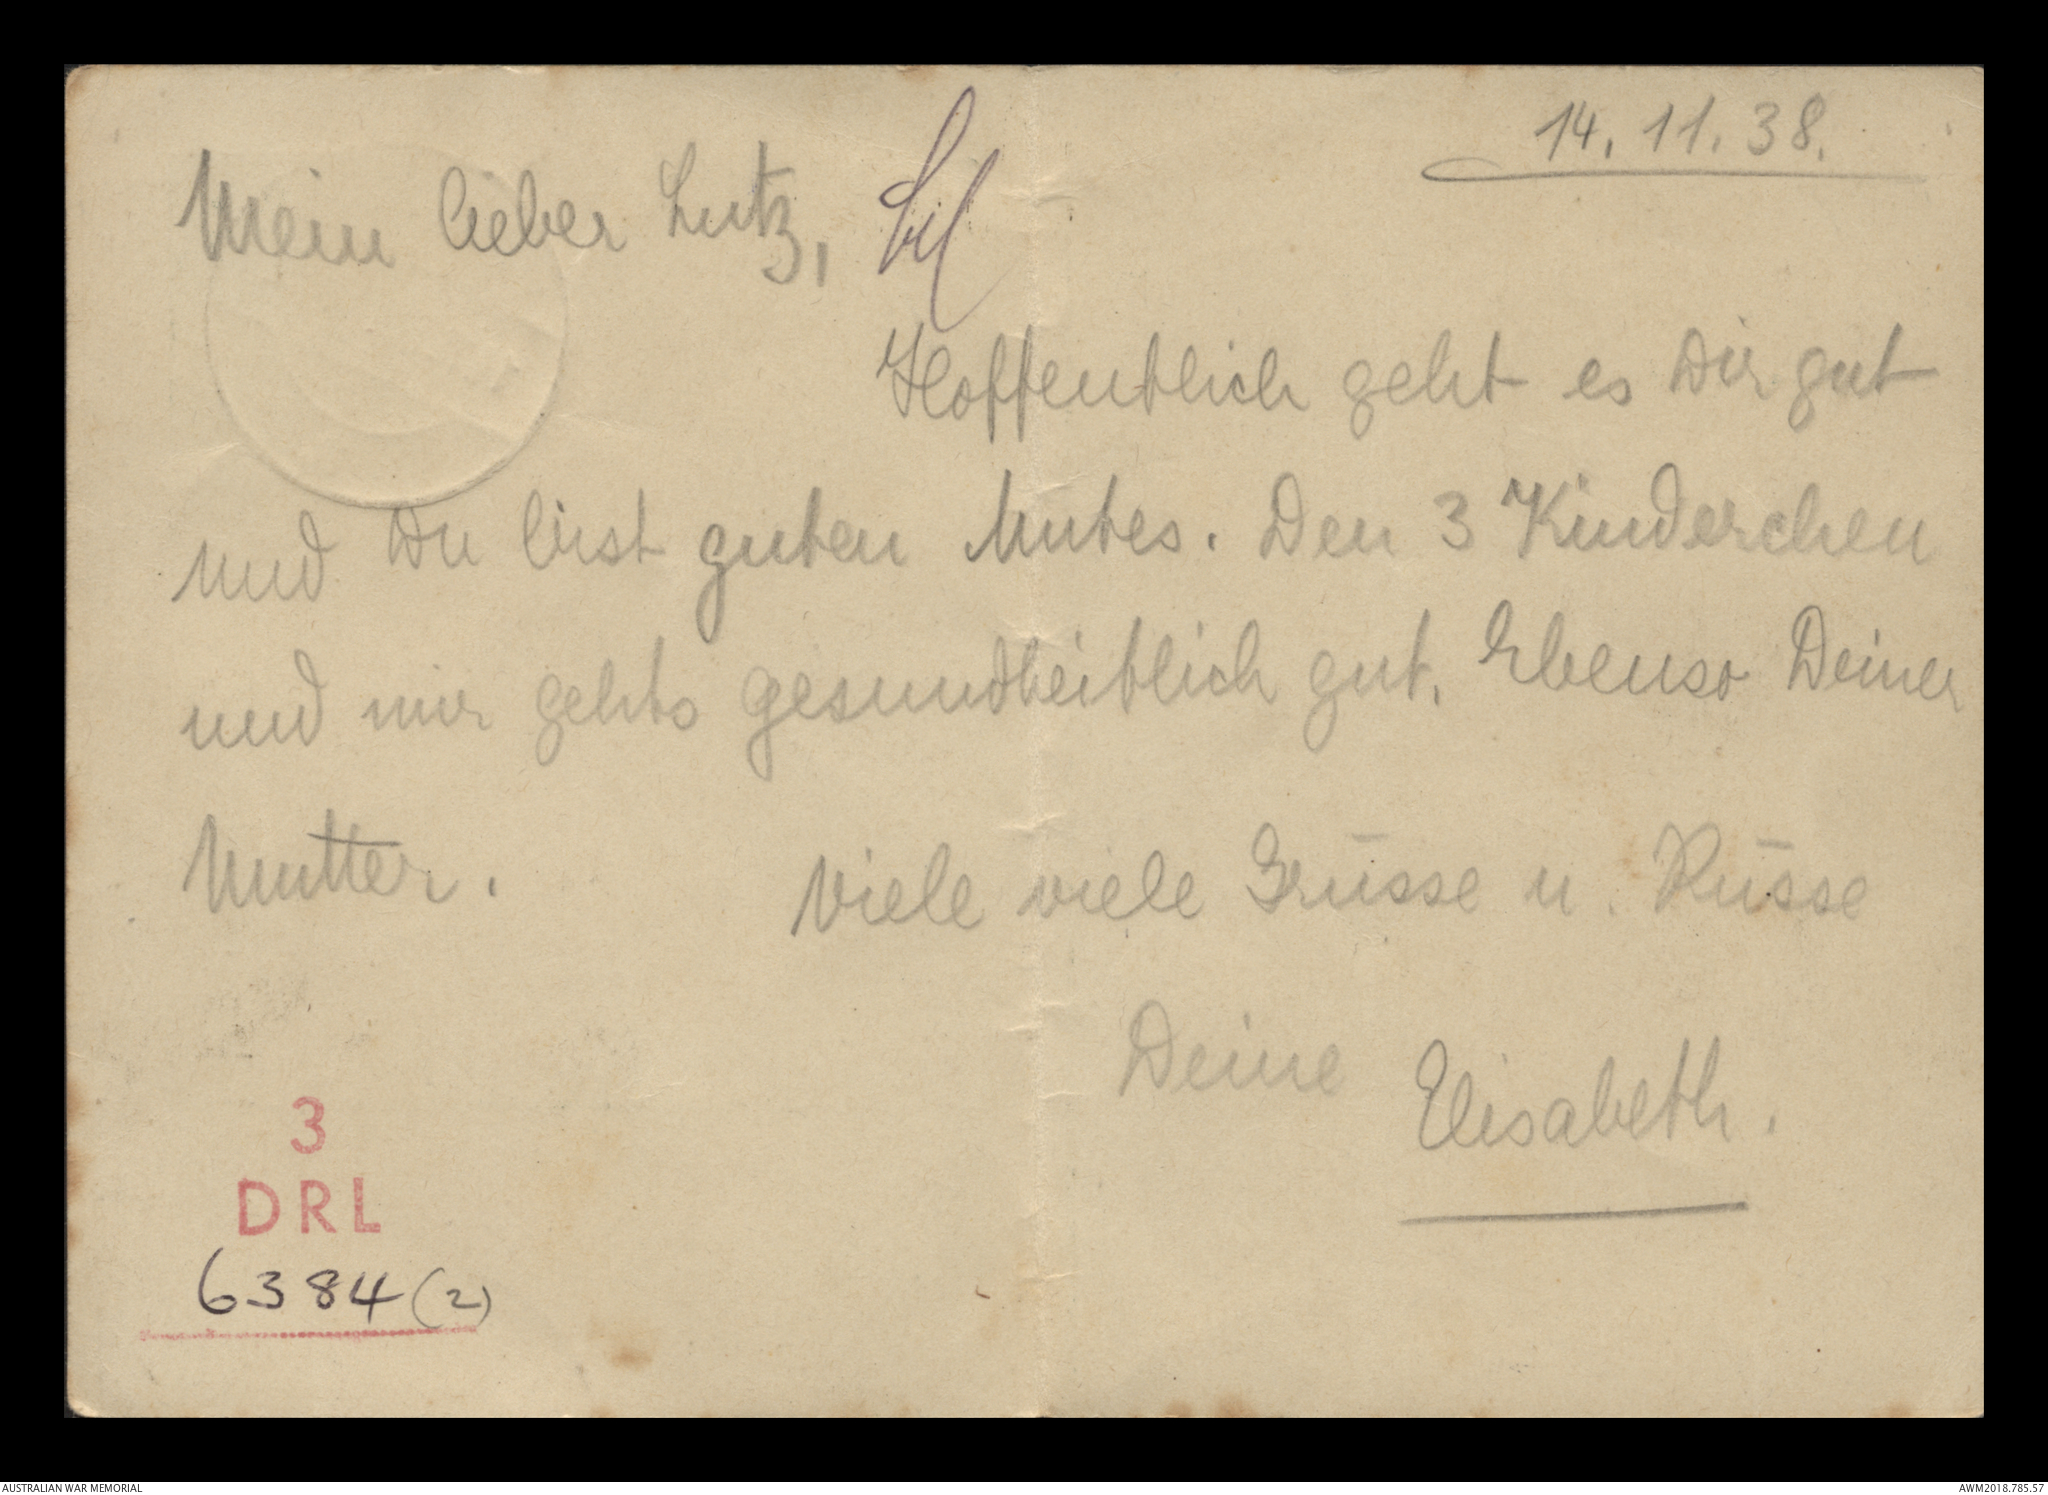 14.11.38.
Mein lieber Lutz,
Hoffentlich geht es Dir gut
und Du bist guten Mutes. Den 3 Kinderchen
und mir gehts gesundheitlich gut. Ebenso Deiner
Mutter. Viele viele Grüsse u. Küsse
Deine Elisabeth.
3
DRL
6384(2)
AUSTRALIAN WAR MEMORIAL
AWM2018.785.57